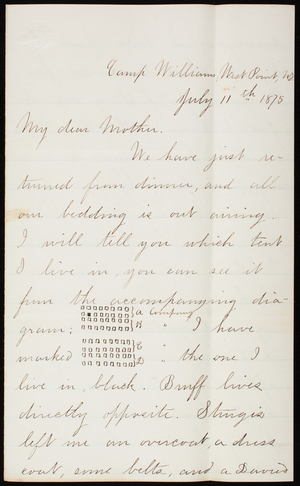 Camp Williams, West Point, N
July 11th 1878
My dear Mother.
We have just re-
turned from dinner, and all
our bedding is out airing.
I will tell you which tent
I live in, you can see it
from the accompanying dia-
gram: A Company
B " I have
marked C
D " the one I
live in, black. Bruff lives
directly opposite. Sturgis
left me an overcoat, a dress
coat, some belts, and a David